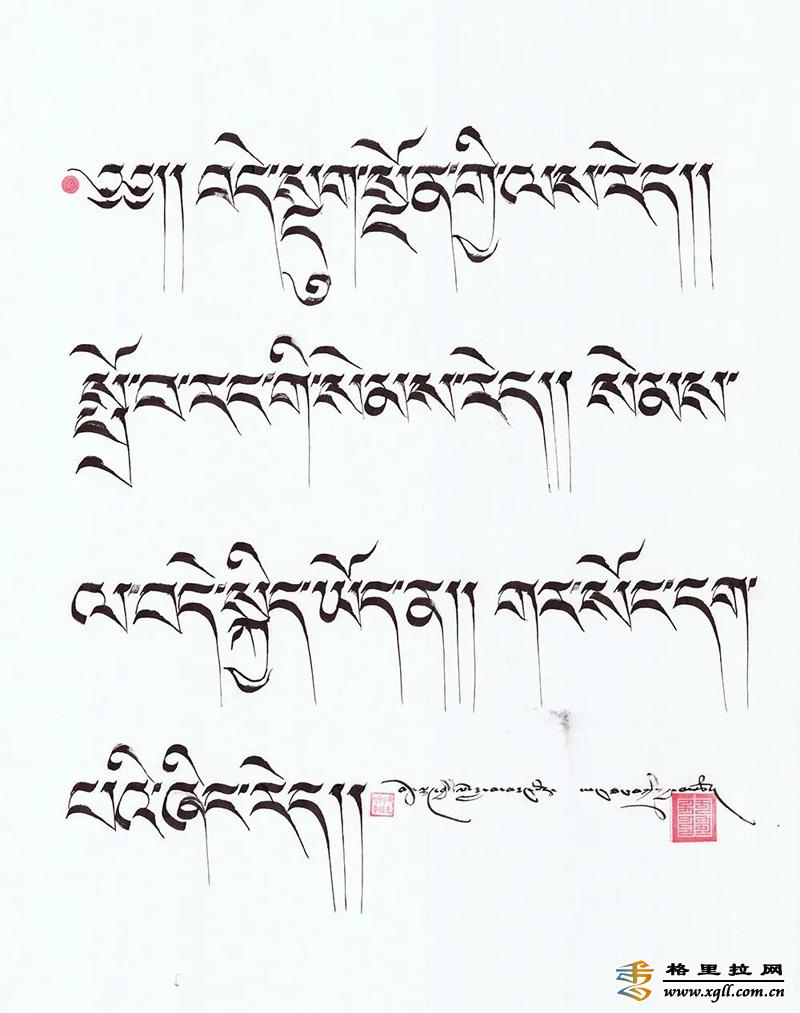 ༄༅།། བདེ་སྡུག་སྔོན་གྱི་ལས་རེད།།
སྤྲོ་བ་རང་གི་སེམས་རེད།། སེམས་
ལ་བདེ་སྐྱིད་ཡོད་ན།། གར་སོང་དག་
པའི་ཞིང་རེད།།
格里拉网
www.xgll.com.cn